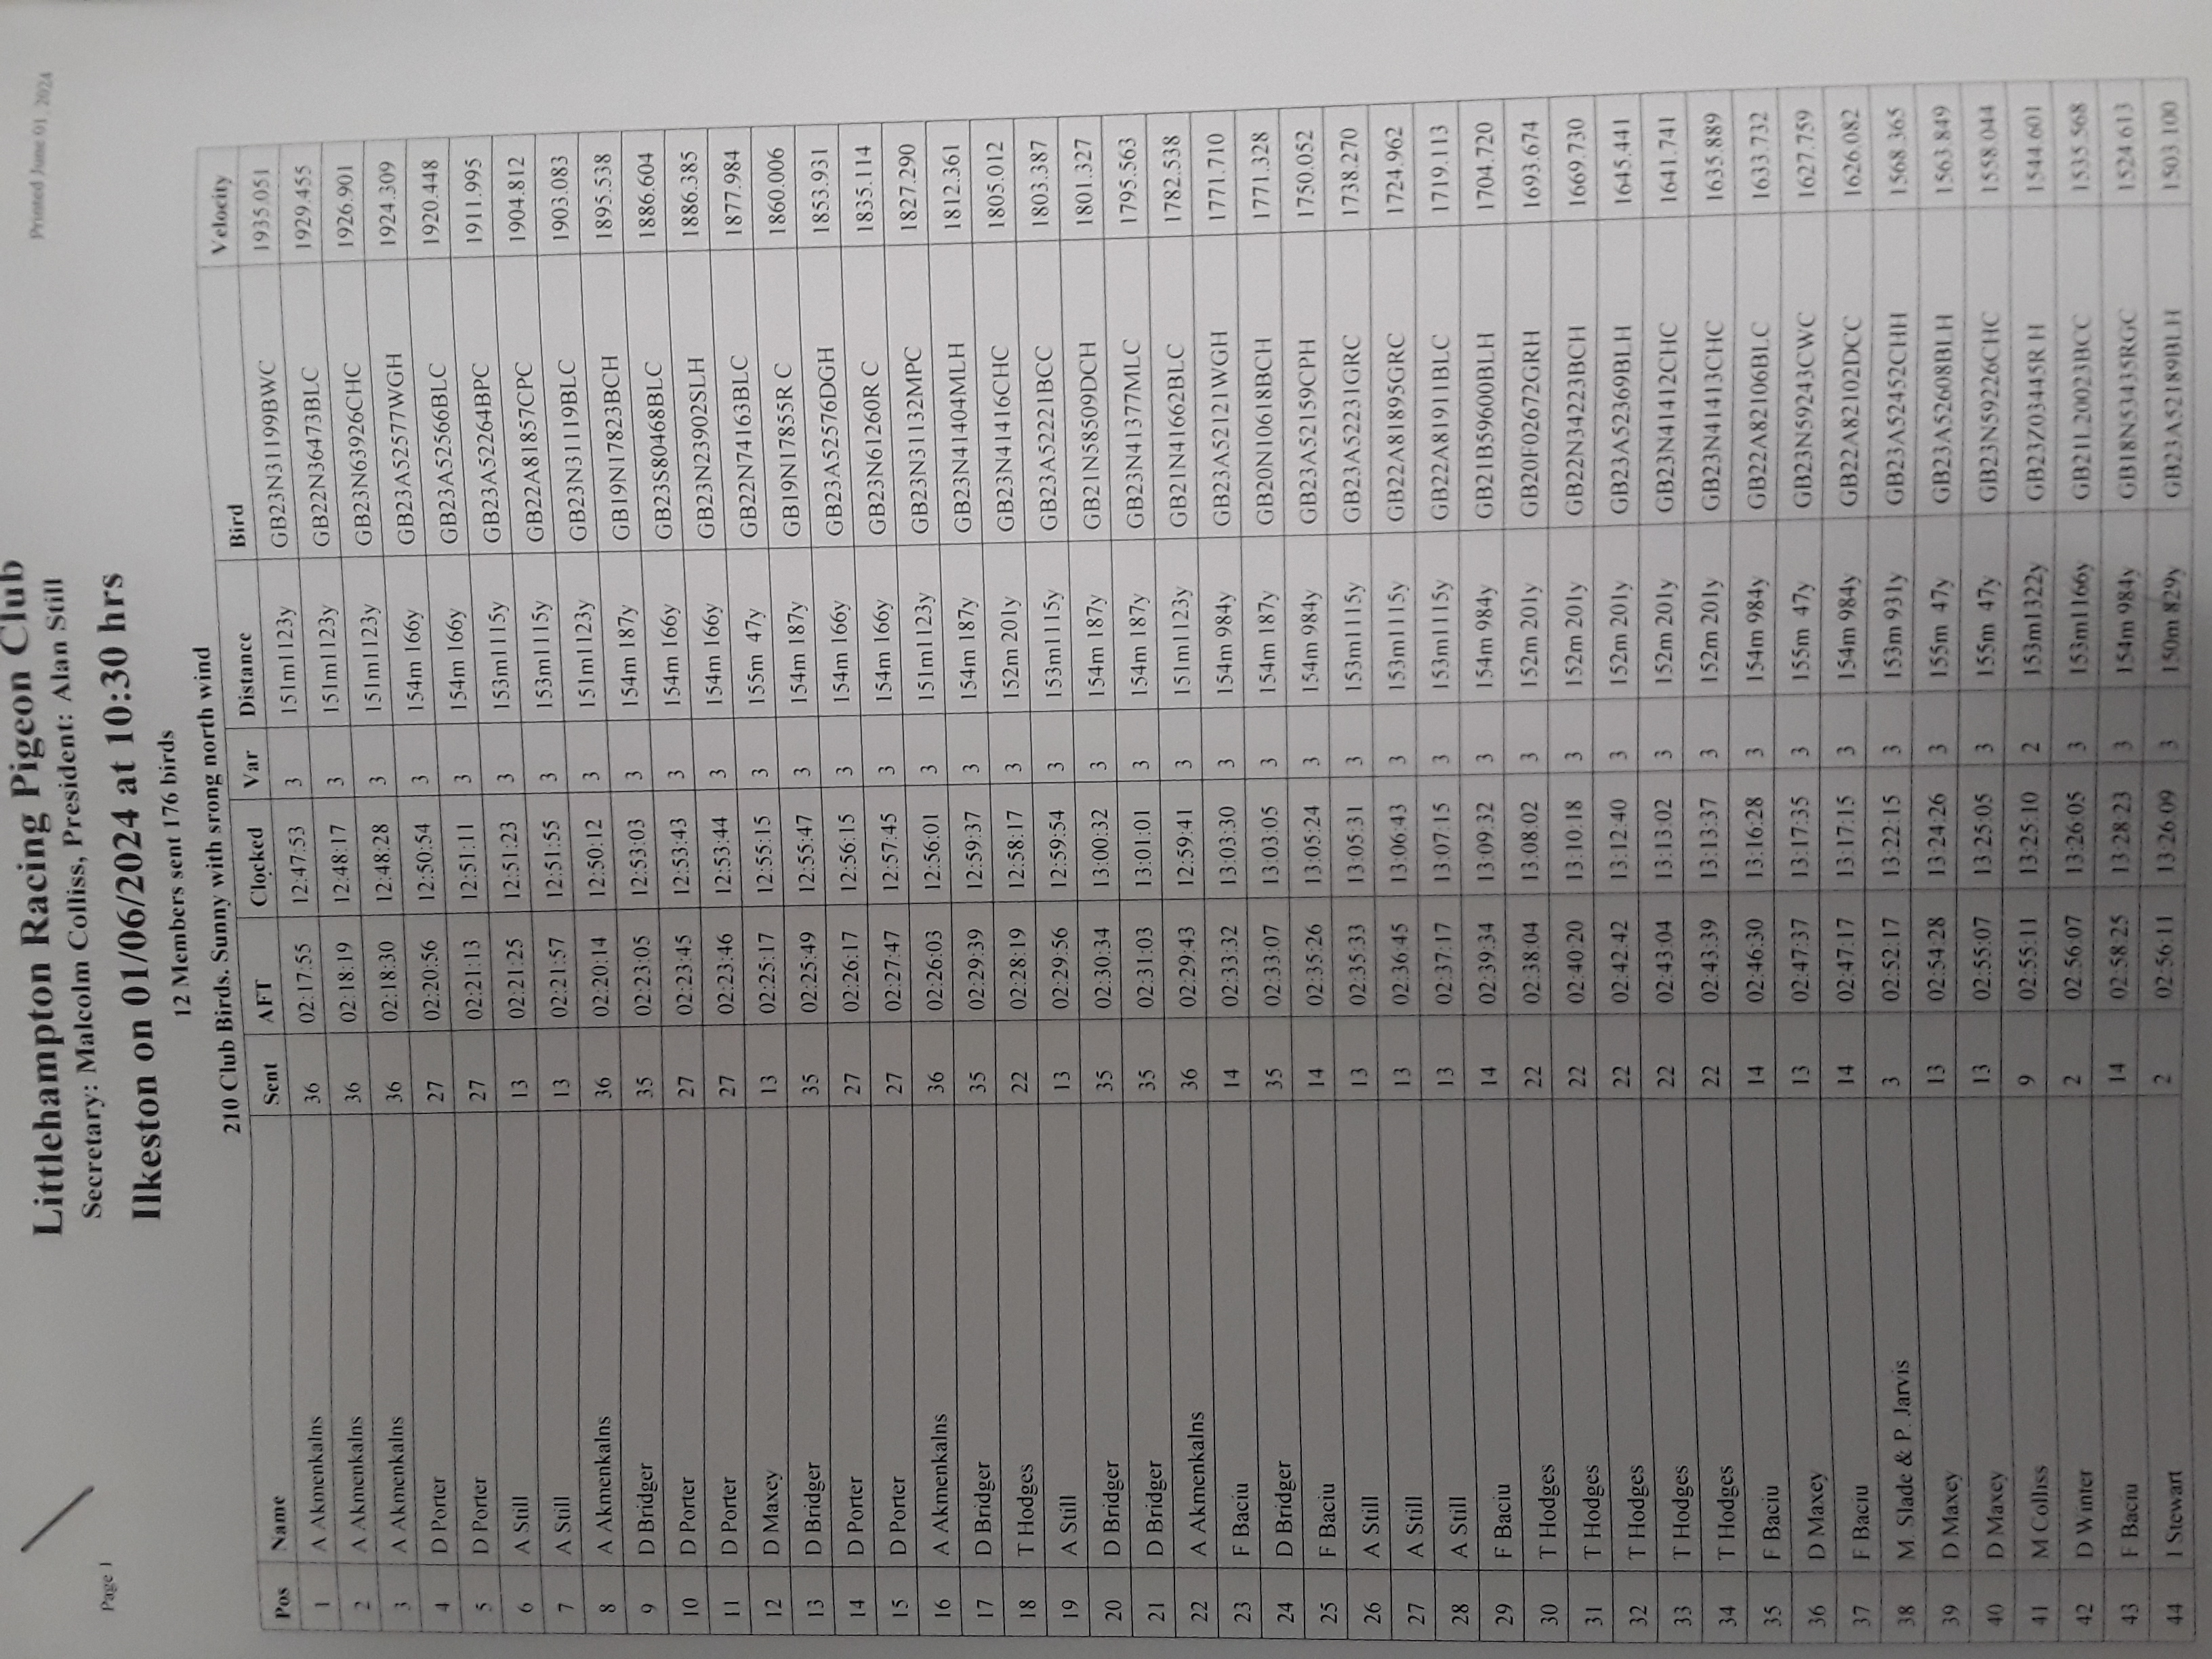 Page 1
Printed June 01, 2024
Littlehampton Racing Pigeon Club
Secretary: Malcolm Colliss, President: Alan Still
Ilkeston on 01/06/2024 at 10:30 hrs
12 Members sent 176 birds
210 Club Birds. Sunny with srong north wind
Pos Name Sent AFT Clocked Var Distance Bird Velocity
1 A Akmenkalns 36 02:17:55 12:47:53 3 151m1123y GB23N31199BWC 1935.051
2 A Akmenkalns 36 02:18:19 12:48:17 3 151m1123y GB22N36473BLC 1929.455
3 A Akmenkalns 36 02:18:30 12:48:28 3 151m1123y GB23N63926CHC 1926.901
4 D Porter 27 02:20:56 12:50:54 3 154m 166y GB23A52577WGH 1924.309
5 D Porter 27 02:21:13 12:51:11 3 154m 166y GB23A52566BLC 1920.448
6 A Still 13 02:21:25 12:51:23 3 153m1115y GB23A52264BPC 1911.995
7 A Still 13 02:21:57 12:51:55 3 153m1115y GB22A81857CPC 1904.812
8 A Akmenkalns 36 02:20:14 12:50:12 3 151m1123y GB23N31119BLC 1903.083
9 D Bridger 35 02:23:05 12:53:03 3 154m 187y GB19N17823BCH 1895.538
10 D Porter 27 02:23:45 12:53:43 3 154m 166y GB23S80468BLC 1886.604
11 D Porter 27 02:23:46 12:53:44 3 154m 166y GB23N23902SLH 1886.385
12 D Maxey 13 02:25:17 12:55:15 3 155m 47y GB22N74163BLC 1877.984
13 D Bridger 35 02:25:49 12:55:47 3 154m 187y GB19N17855R C 1860.006
14 D Porter 27 02:26:17 12:56:15 3 154m 166y GB23A52576DGH 1853.931
15 D Porter 27 02:27:47 12:57:45 3 154m 166y GB23N61260R C 1835.114
16 A Akmenkalns 36 02:26:03 12:56:01 3 151m1123y GB23N31132MPC 1827.290
17 D Bridger 35 02:29:39 12:59:37 3 154m 187y GB23N41404MLH 1812.361
18 T Hodges 22 02:28:19 12:58:17 3 152m 201y GB23N41416CHC 1805.012
19 A Still 13 02:29:56 12:59:54 3 153m1115y GB23A52221BCC 1803.387
20 D Bridger 35 02:30:34 13:00:32 3 154m 187y GB21N58509DCH 1801.327
21 D Bridger 35 02:31:03 13:01:01 3 154m 187y GB23N41377MLC 1795.563
22 A Akmenkalns 36 02:29:43 12:59:41 3 151m1123y GB21N41662BLC 1782.538
23 F Baciu 14 02:33:32 13:03:30 3 154m 984y GB23A52121WGH 1771.710
24 D Bridger 35 02:33:07 13:03:05 3 154m 187y GB20N10618BCH 1771.328
25 F Baciu 14 02:35:26 13:05:24 3 154m 984y GB23A52159CPH 1750.052
26 A Still 13 02:35:33 13:05:31 3 153m1115y GB23A52231GRC 1738.270
27 A Still 13 02:36:45 13:06:43 3 153m1115y GB22A81895GRC 1724.962
28 A Still 13 02:37:17 13:07:15 3 153m1115y GB22A81911BLC 1719.113
29 F Baciu 14 02:39:34 13:09:32 3 154m 984y GB21B59600BLH 1704.720
30 T Hodges 22 02:38:04 13:08:02 3 152m 201y GB20F02672GRH 1693.674
31 T Hodges 22 02:40:20 13:10:18 3 152m 201y GB22N34223BCH 1669.730
32 T Hodges 22 02:42:42 13:12:40 3 152m 201y GB23A52369BLH 1645.441
33 T Hodges 22 02:43:04 13:13:02 3 152m 201y GB23N41412CHC 1641.741
34 T Hodges 22 02:43:39 13:13:37 3 152m 201y GB23N41413CHC 1635.889
35 F Baciu 14 02:46:30 13:16:28 3 154m 984y GB22A82106BLC 1633.732
36 D Maxey 13 02:47:37 13:17:35 3 155m 47y GB23N59243CWC 1627.759
37 F Baciu 14 02:47:17 13:17:15 3 154m 984y GB22A82102DCC 1626.082
38 M. Slade & P. Jarvis 3 02:52:17 13:22:15 3 153m 931y GB23A52452CHH 1568.365
39 D Maxey 13 02:54:28 13:24:26 3 155m 47y GB23A52608BLH 1563.849
40 D Maxey 13 02:55:07 13:25:05 3 155m 47y GB23N59226CHC 1558.044
41 M Colliss 9 02:55:11 13:25:10 2 153m1322y GB23Z03445R H 1544.601
42 D Winter 2 02:56:07 13:26:05 3 153m1166y GB21L20023BCC 1535.568
43 F Baciu 14 02:58:25 13:28:23 3 154m 984y GB18N53435RGC 1524.613
44 I Stewart 2 02:56:11 13:26:09 3 150m 829y GB23A52189BLH 1503.100